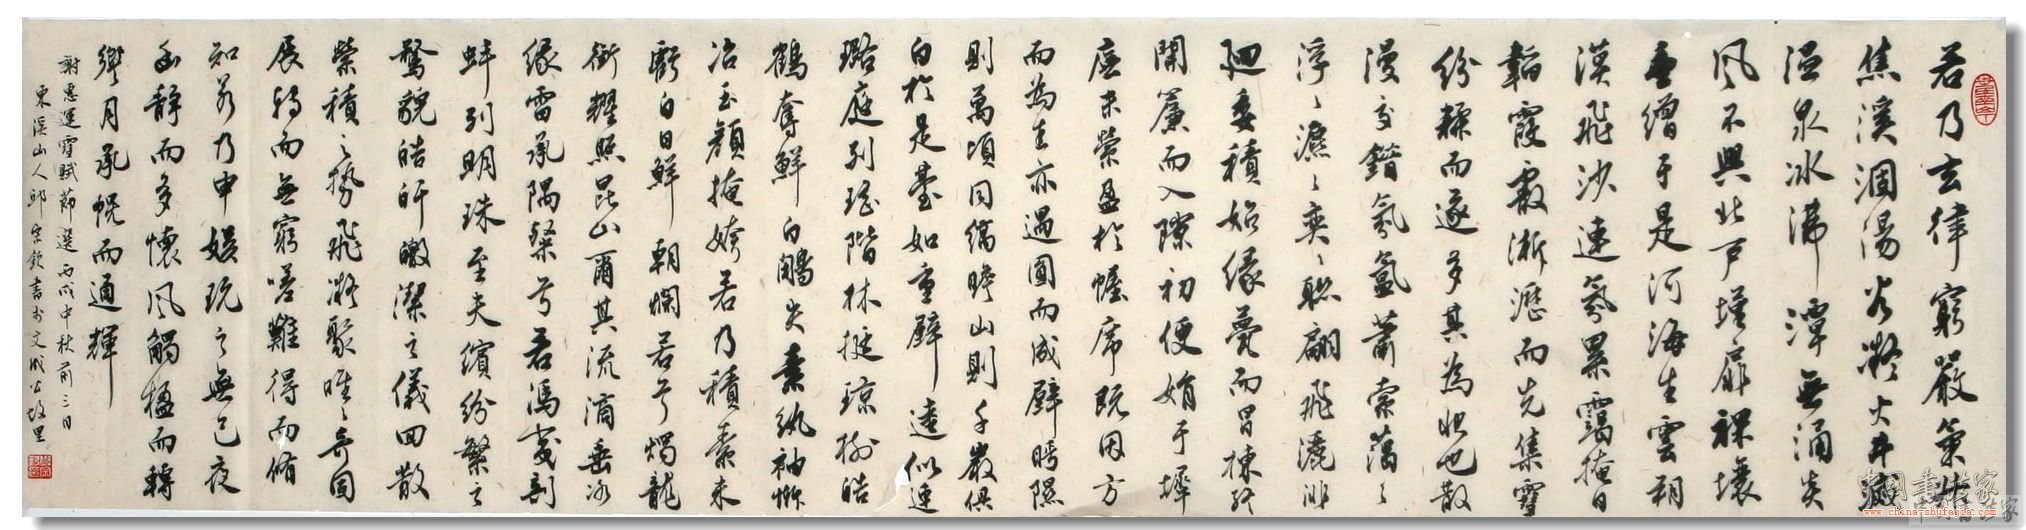 若乃玄律窮嚴氣升
焦溪涸湯谷凝火井滅
溫泉冰沸潭無涌炎
風不興北戶墐扉裸壤
垂繒于是河海生雲朔
漠飛沙連氛累靄掩日
韜霞霰淅瀝而先集雪
紛糅而遂多其為狀也散
漫交錯氛氳蕭索藹々
浮々瀌々奕々聯翩飛灑徘
迴委積始緣甍而冒棟終
開簾而入隙初便娟于墀
廡末縈盈於幄席既因方
而為圭亦遇圓而成璧眄隰
則萬頃同縞瞻山則千巖俱
白於是臺如重璧逵似連
璐庭列瑤階林挺瓊樹皓
鶴奪鮮白鷴失素紈袖慚
冶玉顏掩姱若乃積素未
虧白日鮮朝爛若兮燭龍
銜耀照昆山爾其流滴垂冰
緣霤承隅粲兮若馮夷剖
蚌列明珠至夫繽紛繁之
騖貌皓皔皦潔之儀回散
縈積之勢飛凝聚之奇固
展轉而無窮嗟難得而備
知若乃申娛玩之無已夜
幽靜而多懷風觸楹而轉
響月承幌而通輝
謝惠連雪賦節選丙戌中秋前三日
東溪山人邱宗欽書於文成公故里
中国書法家
www.china-shufajia.com